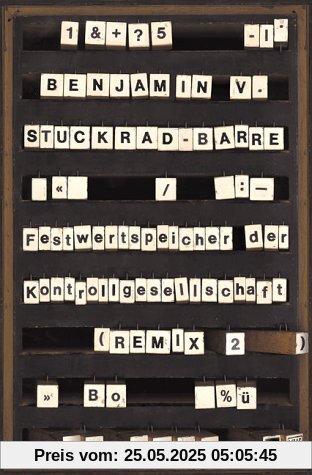 1 & + ? 5 - I -
BENJAMIN V.
STUCKRAD-BARRE
« / : —
Festwertspeicher der
Kontrollgesellschaft
(REMIX 2 )
» Bo % ü
Preis vom: 25.05.2025 05:05:45